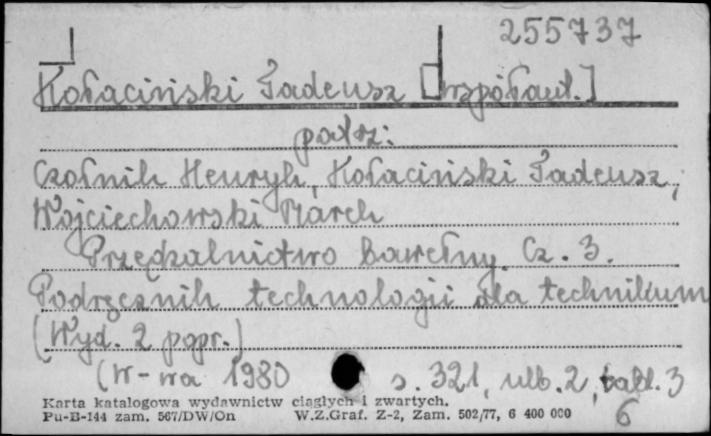 255737
Kołaciński Tadeusz [współaut.]
patrz:
Czolnik Henryk, Kołaciński Tadeusz,
Wojciechowski Marek
Przędzalnictwo bawełny. Cz. 3.
Podręcznik technologii dla technikum
(Wyd. 2 popr.)
(W-wa 1980 s. 321, nlb. 2, tabl. 3
6
Karta katalogowa wydawnictw ciągłych i zwartych.
Pu-B-144 zam. 567/DW/On W.Z.Graf. Z-2, Zam. 502/77, 6 400 000